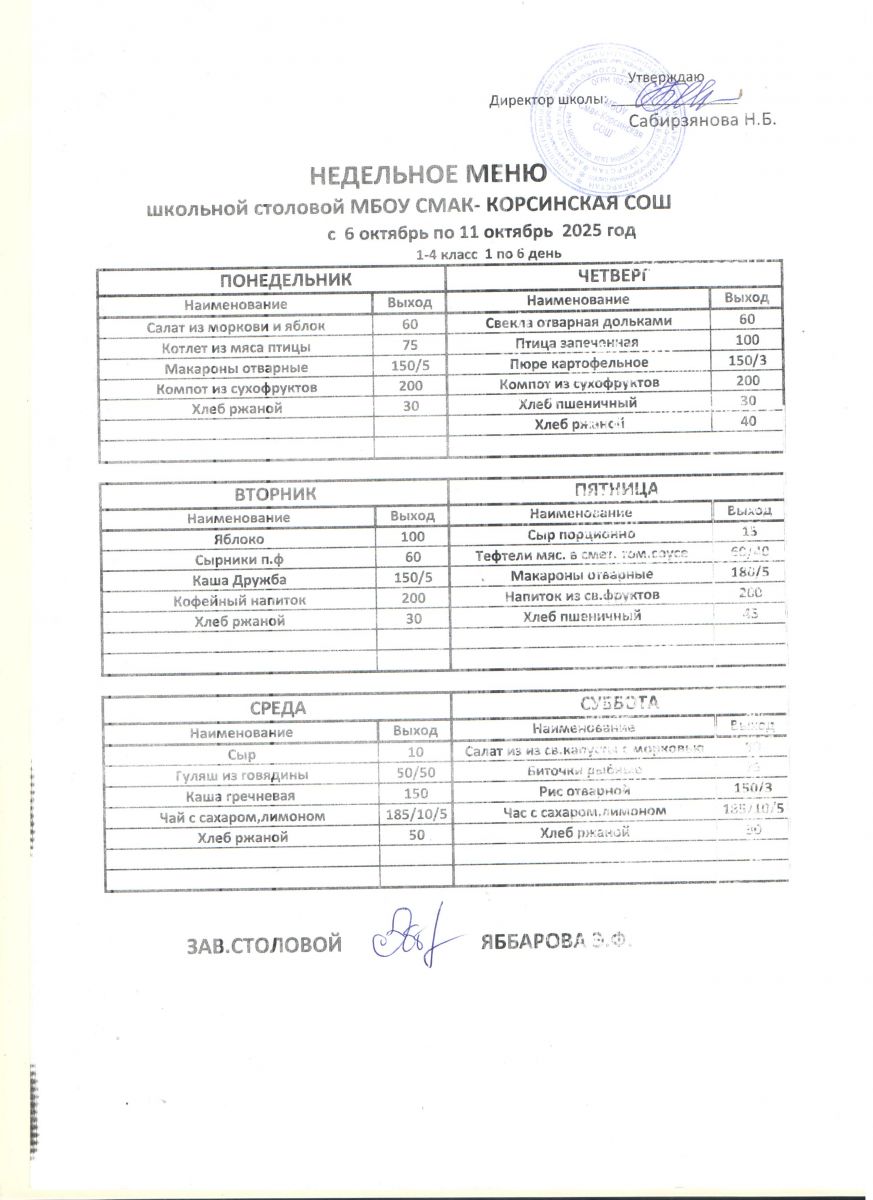 Утверждаю
Директор школы:
Сабирзянова Н.Б.
МБОУ
Смак-Корсинская
СОШ
НЕДЕЛЬНОЕ МЕНЮ
школьной столовой МБОУ СМАК- КОРСИНСКАЯ СОШ
с 6 октябрь по 11 октябрь 2025 год
1-4 класс 1 по 6 день
ПОНЕДЕЛЬНИК
Наименование Выход
Салат из моркови и яблок 60
Котлет из мяса птицы 75
Макароны отварные 150/5
Компот из сухофруктов 200
Хлеб ржаной 30
ЧЕТВЕРГ
Наименование Выход
Свекла отварная дольками 60
Птица запеченная 100
Пюре картофельное 150/3
Компот из сухофруктов 200
Хлеб пшеничный 30
Хлеб ржаной 40
ВТОРНИК
Наименование Выход
Яблоко 100
Сырники п.ф 60
Каша Дружба 150/5
Кофейный напиток 200
Хлеб ржаной 30
ПЯТНИЦА
Наименование Выход
Сыр порционно 15
Тефтели мяс. в смет. том.соусе
Макароны отварные 180/5
Напиток из св.фруктов 200
Хлеб пшеничный 45
СРЕДА
Наименование Выход
Сыр 10
Гуляш из говядины 50/50
Каша гречневая 150
Чай с сахаром,лимоном 185/10/5
Хлеб ржаной 50
СУББОТА
Наименование Выход
Салат из из св.капусты с морковью
Биточки рыбные
Рис отварной 150/3
Час с сахаром,лимоном 185/10/5
Хлеб ржаной
ЗАВ.СТОЛОВОЙ ЯББАРОВА Э.Ф.